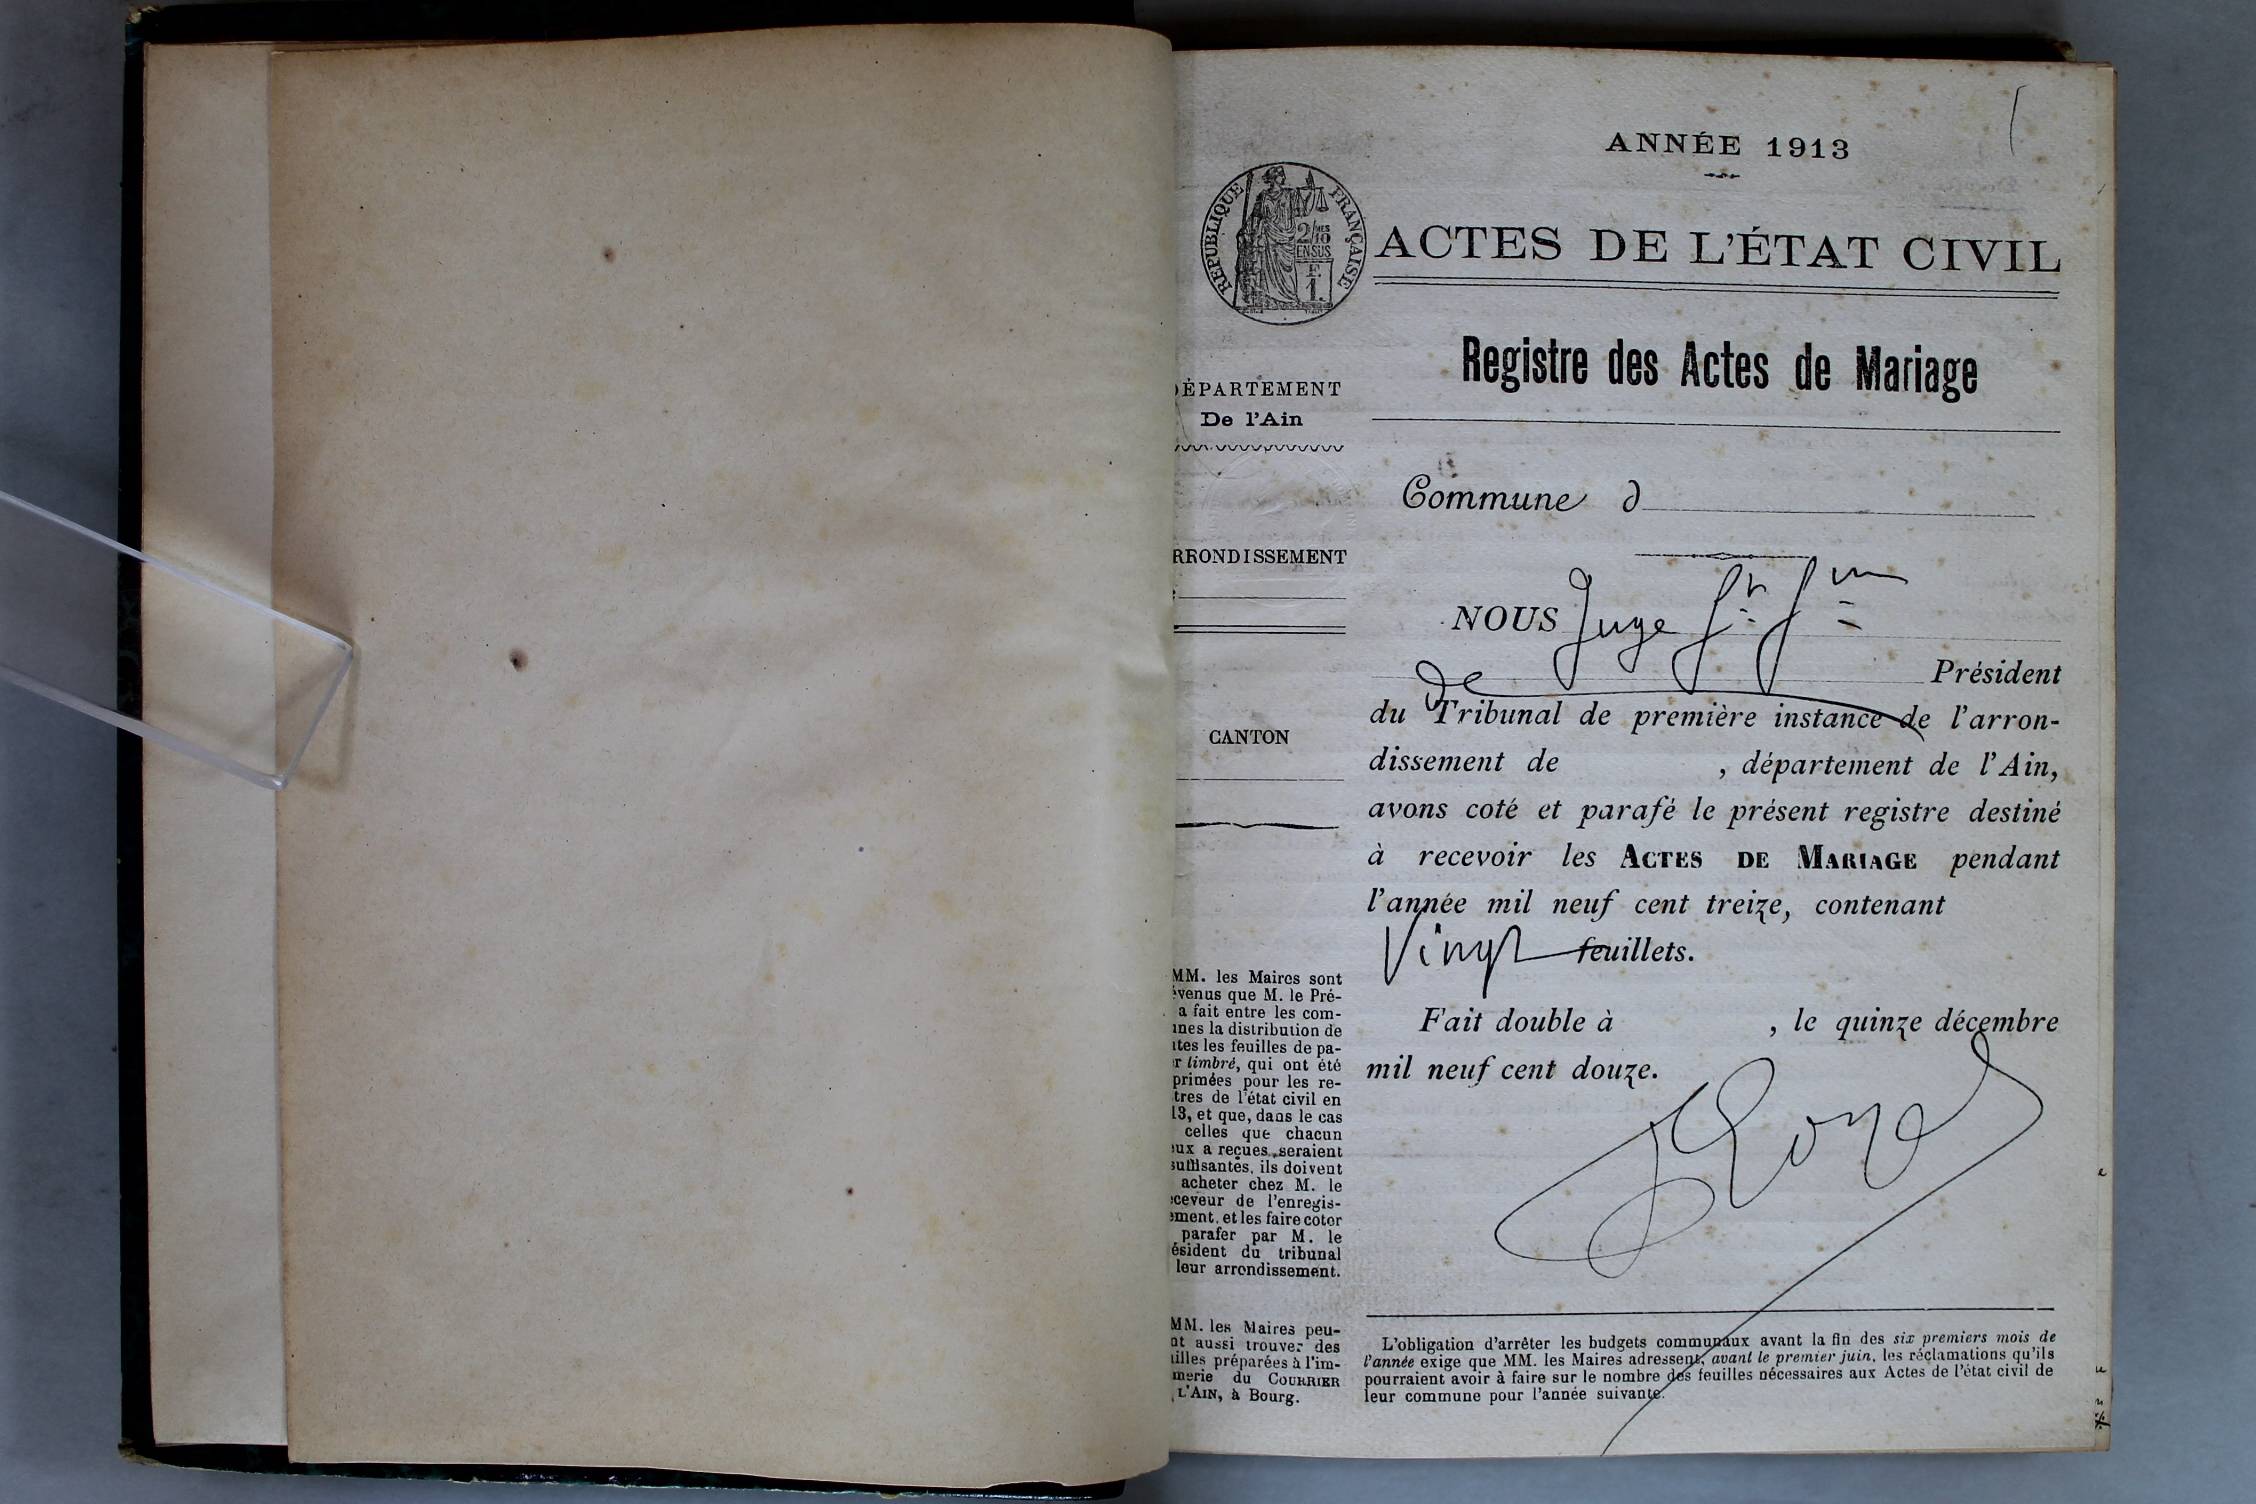 ANNÉE 1913
RÉPUBLIQUE FRANÇAISE
2/10MES
EN SUS
F.
1.
ACTES DE L'ÉTAT CIVIL
Registre des Actes de Mariage
DÉPARTEMENT
De l'Ain
RRONDISSEMENT
CANTON
MM. les Maires sont
évenus que M. le Pré-
a fait entre les com-
unes la distribution de
utes les feuilles de pa-
r timbré, qui ont été
primées pour les re-
tres de l'état civil en
13, et que, dans le cas
celles que chacun
eux a reçues seraient
suffisantes, ils doivent
acheter chez M. le
eceveur de l'enregis-
ement, et les faire coter
parafer par M. le
ésident du tribunal
leur arrondissement.
MM. les Maires peu-
nt aussi trouver des
uilles préparées à l'im-
merie du COURRIER
L'AIN, à Bourg.
Commune d
NOUS Juge
de Président
du Tribunal de première instance de l'arron-
dissement de , département de l'Ain,
avons coté et parafé le présent registre destiné
à recevoir les ACTES DE MARIAGE pendant
l'année mil neuf cent treize, contenant
Vingt feuillets.
Fait double à , le quinze décembre
mil neuf cent douze.
L'obligation d'arrêter les budgets communaux avant la fin des six premiers mois de
l'année exige que MM. les Maires adressent, avant le premier juin, les réclamations qu'ils
pourraient avoir à faire sur le nombre des feuilles nécessaires aux Actes de l'état civil de
leur commune pour l'année suivante.